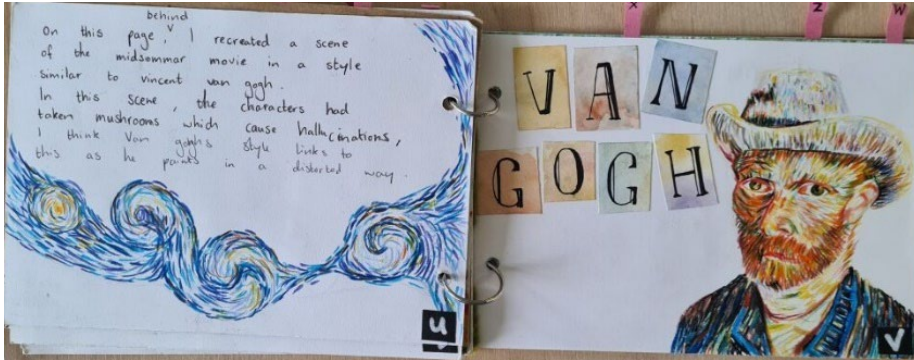 behind
On this page, I recreated a scene
of the midsommar movie in a style
similar to vincent van gogh.
In this scene, the characters had
taken mushrooms which cause hallucinations,
I think Van gogh's style links to
this as he paints in a distorted way.
u
X
Z
W
VAN
GOGH
V